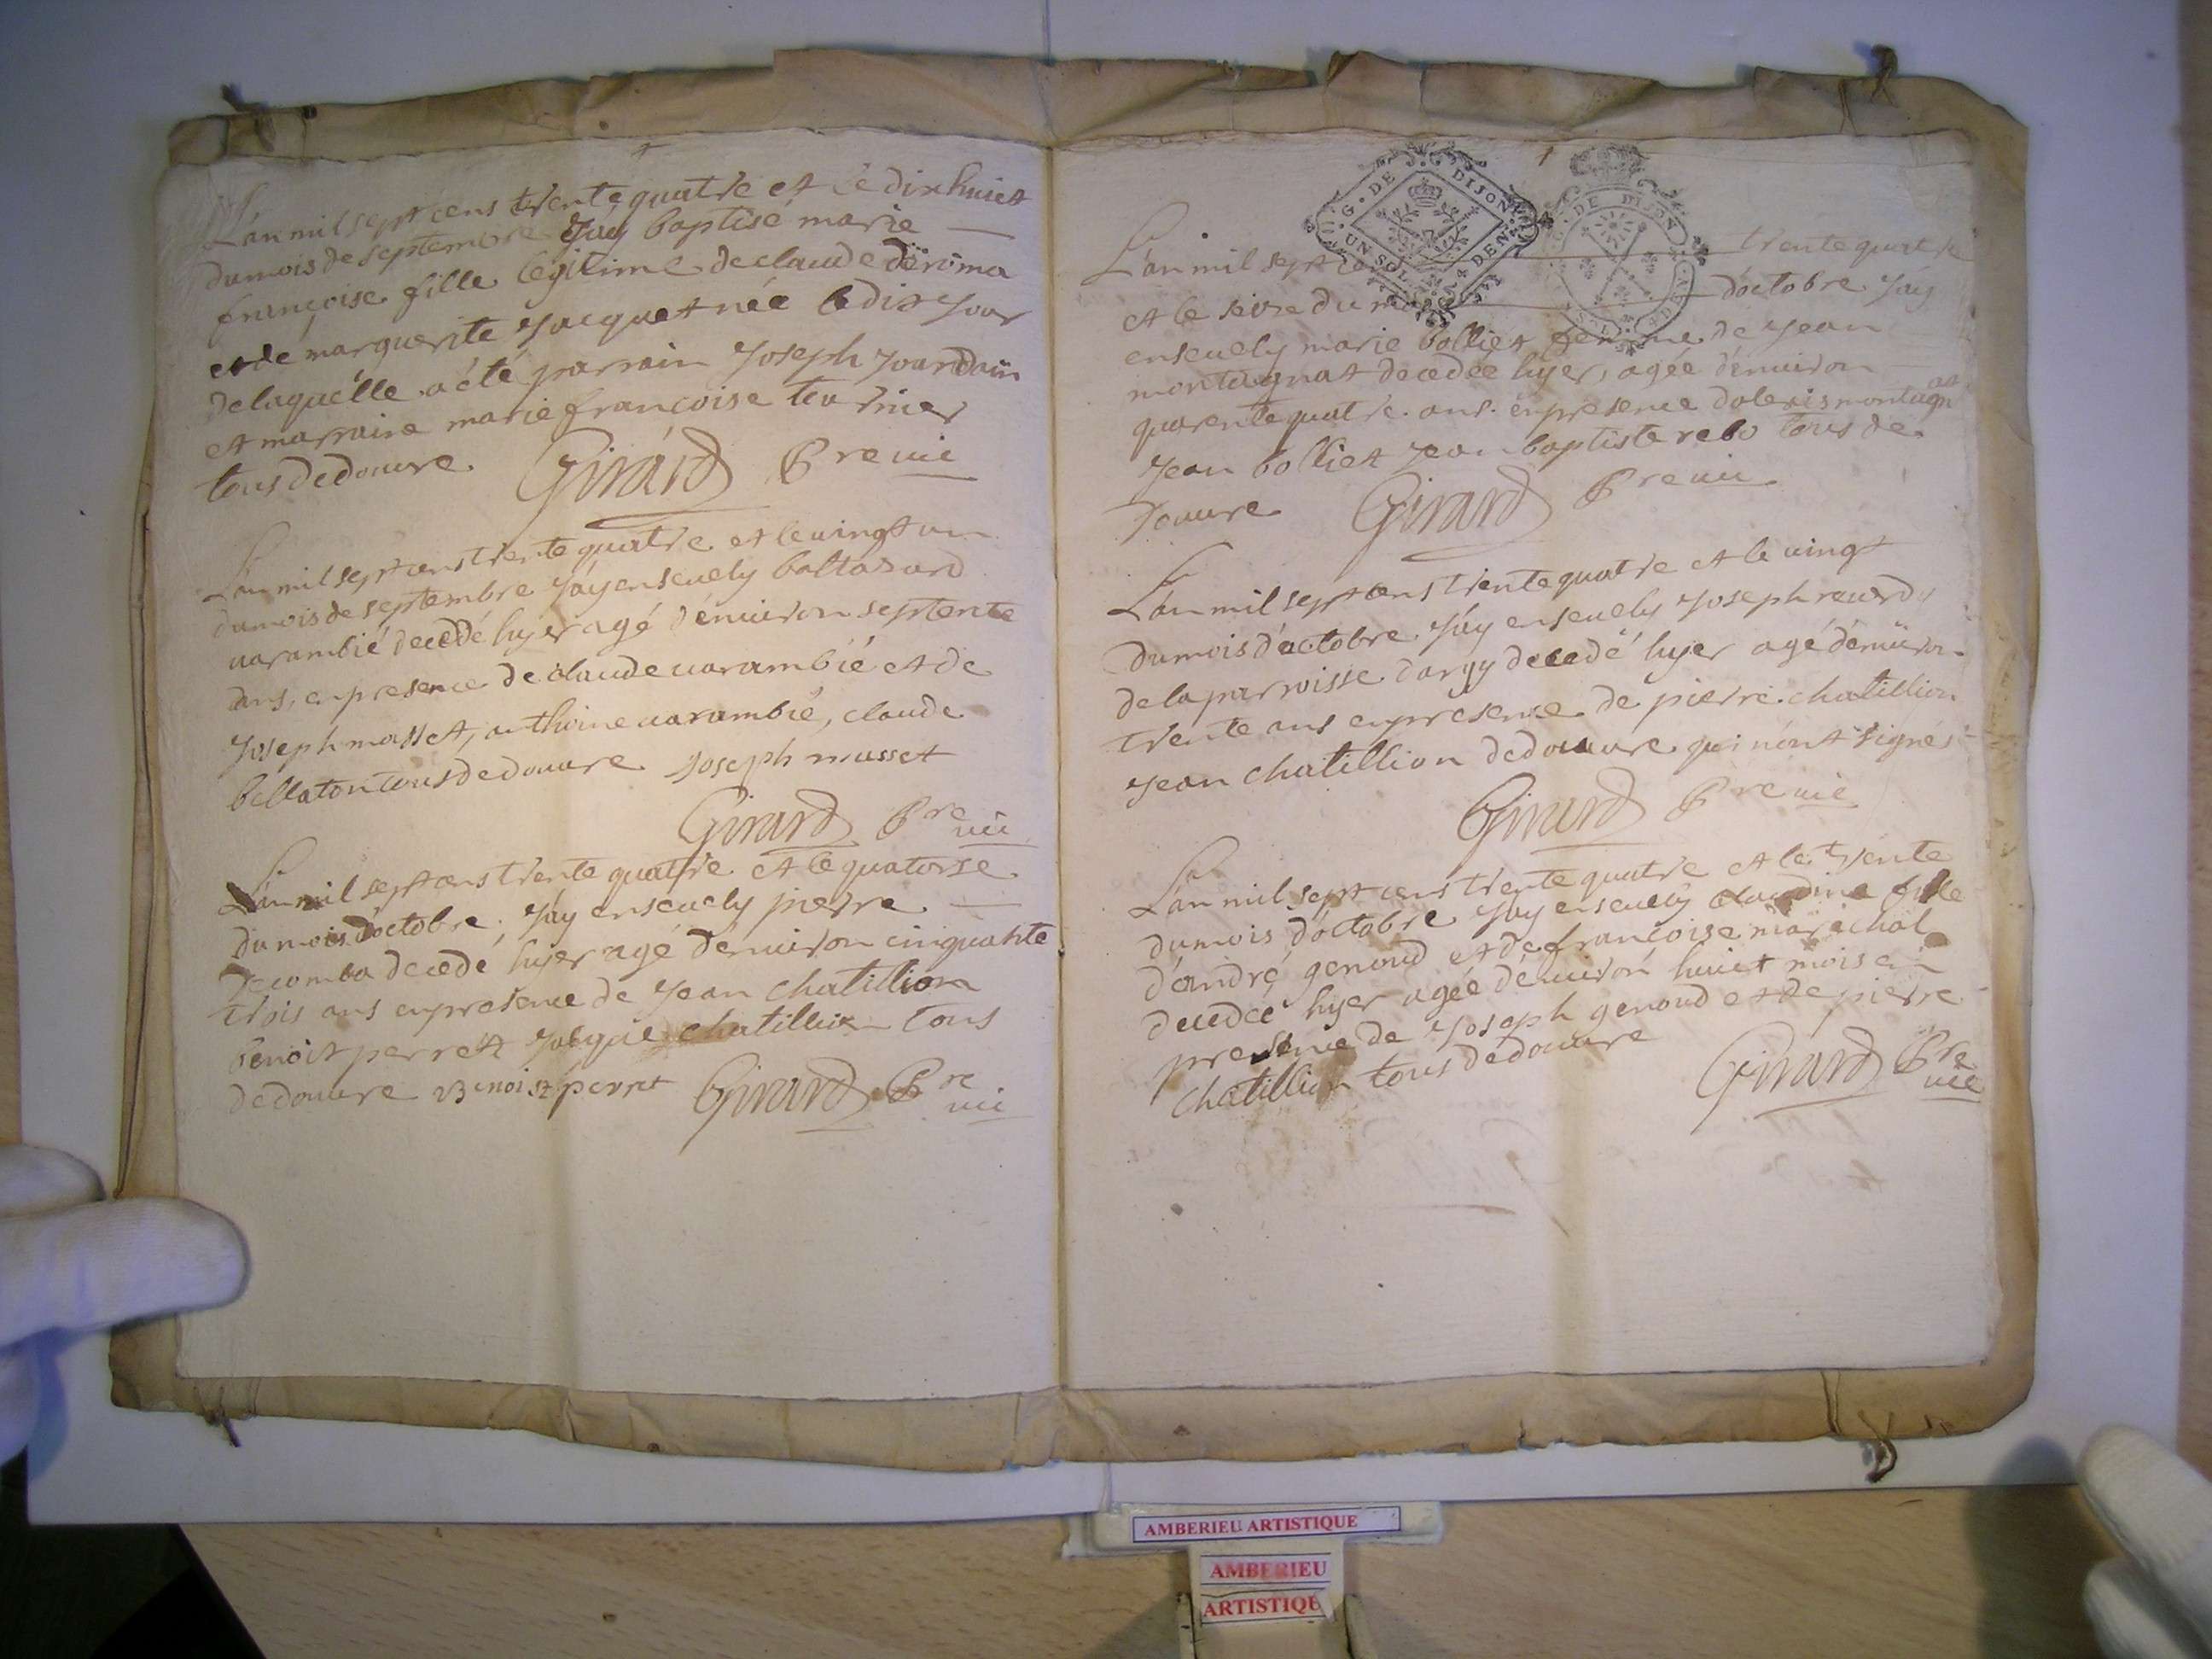 L'an mil sept cens trente quatre et le dix huict
du mois de septembre J'ay baptisé marie
françoise fille legitime de claude deroma
et de marguerite Jacquet née le dit Jour
de laquélle a été parrain Joseph Jourdain
et marraine marie françoise
tous de douure Girard Bre vic
L'an mil sept cens trente quatre et le uingt un
du mois de septembre J'ay enseuely baltasard
uarambié decedé hyer agé d'enuiron septente
ans, en presence de claude uarambié et de
Joseph masset, anthoine uarambié, claude
bellaton tous de douure Joseph musset
Girard Bre vic
L'an mil sept cens trente quatre et le quatorse
du mois d'octobre, J'ay enseuely pierre
decomba decedé hyer agé d'enuiron cinquante
trois ans en presence de Jean chatillion
benoit perret Jacque chatillion tous
de douure Benoist perret Girard Bre vic
G. DE DIJON
UN SOL 4 DEN
G. DE DIJON
SOL 4 DEN
L'an mil sept cens trente quatre
et le seise du mois d'octobre J'ay
enseuely marie bolliet femme de Jean
montagnat decedée hyer, agée d'enuiron
quarente quatre ans. en presence d'alexis montagnat
Jean bolliet Jean baptiste rebo tous de
douure Girard Bre vic
L'an mil sept cens trente quatre et le uingt
du mois d'octobre J'ay enseuely Joseph
de la parroisse d'argy decedé hyer agé d'enuiron
trente ans en presence de pierre chatillion
Jean chatillion de douure qui n'ont signés
Girard Bre vic
L'an mil sept cens trente quatre et le trente
du mois d'octobre J'ay enseuely claudine fille
d'andré genoud et de françoise maréchal
decedée hyer agée d'enuiron huict mois en
presence de Joseph genoud et de pierre
chatillion tous de douure Girard Bre vic
AMBERIEU ARTISTIQUE
AMBERIEU
ARTISTIQUE